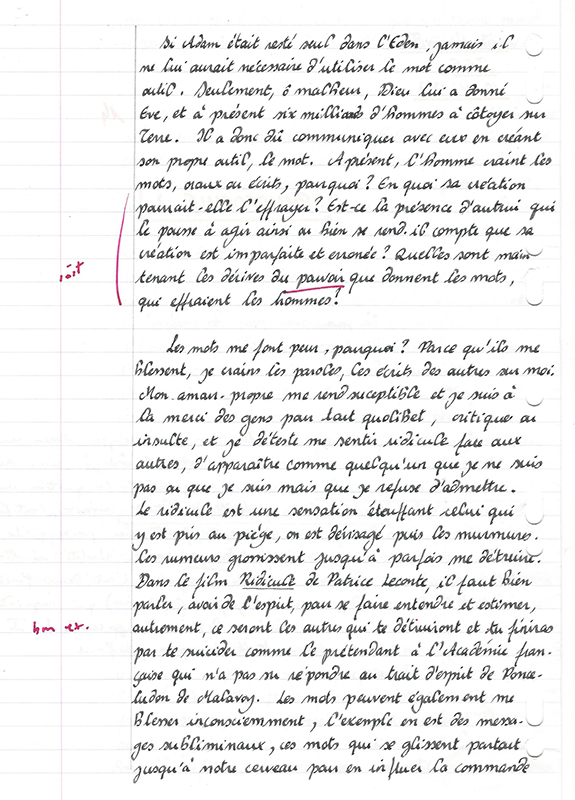 Si Adam était resté seul dans l'Eden, jamais il
ne lui aurait nécessaire d'utiliser le mot comme
outil. Seulement, ô malheur, Dieu lui a donné
Eve, et à présent six milliards d'hommes à côtoyer sur
Terre. Il a donc dû communiquer avec eux en créant
son propre outil, le mot. A présent, l'homme craint les
mots, oraux ou écrits, pourquoi ? En quoi sa création
pourrait-elle l'effrayer ? Est-ce la présence d'autrui qui
le pousse à agir ainsi ou bien se rend-il compte que sa
création est imparfaite et erronée ? Quelles sont main
tenant les dérives du pouvoir que donnent les mots,
qui effraient les hommes ?
Les mots me font peur, pourquoi ? Parce qu'ils me
blessent, je crains les paroles, les écrits des autres sur moi.
Mon amour-propre me rend suceptible et je suis à
la merci des gens pour tout quolibet, critique ou
insulte, et je déteste me sentir ridicule face aux
autres, d'apparaître comme quelqu'un que je ne suis
pas ou que je suis mais que je refuse d'admettre.
Le ridicule est une sensation étouffant celui qui
y est pris au piège, on est dévisagé puis les murmures.
Les rumeurs grossissent jusqu'à parfois me détruire.
Dans le film Ridicule de Patrice Leconte, il faut bien
parler, avoir de l'esprit, pour se faire entendre et estimer,
bon ex. autrement, ce seront les autres qui te détruiront et tu finiras
par te suicider comme le prétendant à l'Académie fran-
çaise qui n'a pas su répondre au trait d'espit de Ponce-
ludon de Malavoy. Les mots peuvent également me
blesser inconsciemment, l'exemple en est des messa-
ges subliminaux, ces mots qui se glissent partout
jusqu'à notre cerveau pour en influer la commande